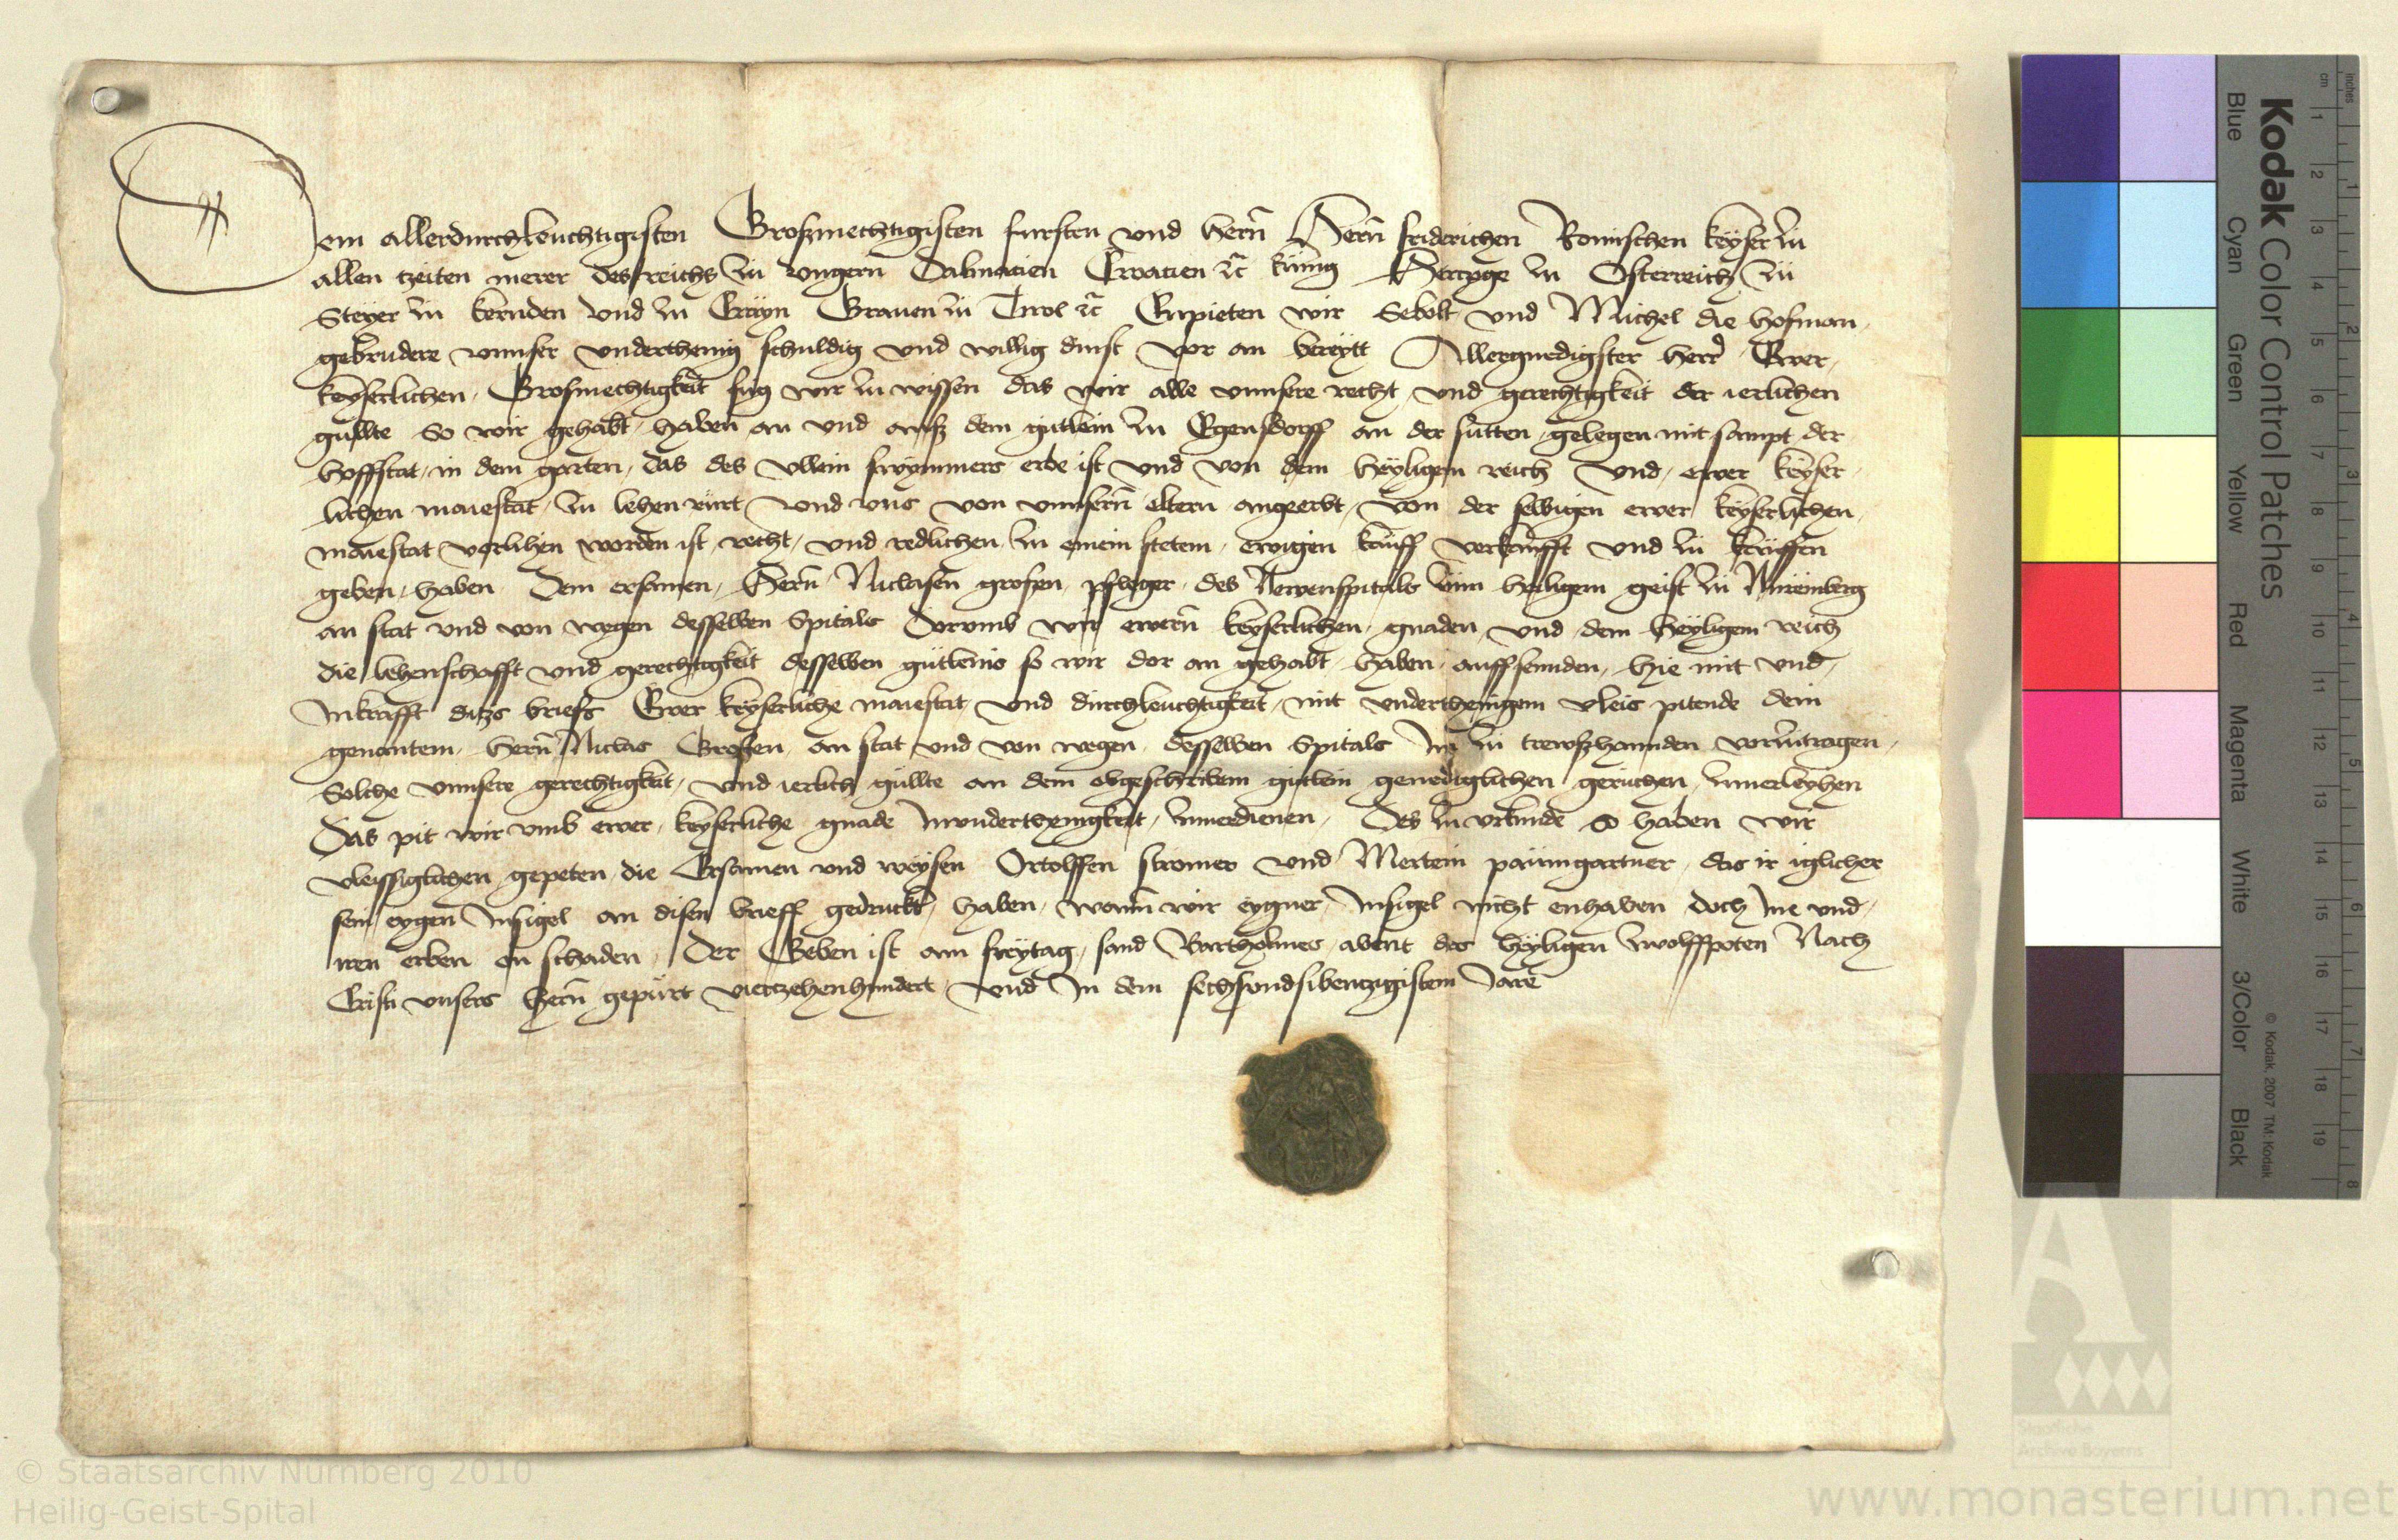 Dem allerdurchleuchtigisten Großmechtigisten fursten vnd Hern̄ Hern̄ friderichen Romischen keyser zu
allen tzeiten merer des reichs zu vngern̄ Dalmacien Croacien ꝛc̄ kunig Hertzoge zu Osterreich zu
Steyer zu kernden vnd zu Crayn Grauen zu Tirol ꝛc̄ Enpieten wir Sebolt vnd Michel die hofman
gebrudere vnnser vnderthenig schuldig vnd willig dinst vor an bereytt Allergnedigster herr Ewer
keyserlichen Grosmechtigkeit fug wir zu wissen das wir alle vnnsere recht vnd gerechtigkeit der ierlichen
gullte So wir gehabt haben an vnd auß dem gutlein zu Egensdorff an der sutten gelegen mit sampt der
hoffstat in dem garten das des vllein freymmers erbe ist vnd von dem heyligem reich vnd ewer keyser
lichen maiestat zu lehen rürt vnd vns von vnnsern̄ eltern angeerbt von der selbigen ewer keyserlichen
maiestat verlihen worden ist recht vnd redlichen zu einem stetem ewigen kauff verkaufft vnd zu kauffen
geben haben Dem ersamen Hern̄ Niclasen grosen pfleger des Newenspitals zum heiligem geist zu Nuremberg
an stat vnd von wegen desselben Spitals Dorumb wir ewern̄ keyserlichen gnaden vnd dem heyligem reich
die lehenschafft vnd gerechtigkeit desselben gutleins so wir dor an gehabt haben auffsennden hie mit vnd
Inkrafft ditzs briefs Ewer keyserliche maiestat vnd durchleuchtigkeit mit vnderthenigem vleis pitende dem
genantem hern̄ Niclas Großen an stat vnd von wegen desselben Spitals Im zu trewßhannden vorzutragen
Solche vnnsere gerechtigkeit vnd ierlich gullte an dem obgeschribem gutlein genediglichen geruchen zuuerleyhen
Das pit wir vmb ewer keyserliche gnade Invnderthenigkeit zuuerdienen Des zu vrkunde so haben wir
vleissiglichen gepeten die Ersamen vnd weysen Ortolffen stromer vnd Mertein paumgartner das ir iglicher
sein eygen Insigel an disen brieff gedruckt haben wann wir eygner Insigel nicht enhaben doch Ine vnd
iren erben on schaden Der Geben ist am freytag sand Bartholmes abent des heyligen zwolffpoten Nach
Cristi vnsers hern̄ gepurt viertzehenhundert vnd In dem sechsundsibentzigistem Jare
Kodak Color Control Patches
Blue Cyan Green Yellow Red Magenta White 3/Color Black
© Kodak, 2007 TM: Kodak
inches 1 2 3 4 5 6 7 8
cm 1 2 3 4 5 6 7 8 9 10 11 12 13 14 15 16 17 18 19
Staatliche
Archive Bayerns
© Staatsarchiv Nürnberg 2010
Heilig-Geist-Spital
www.monasterium.net